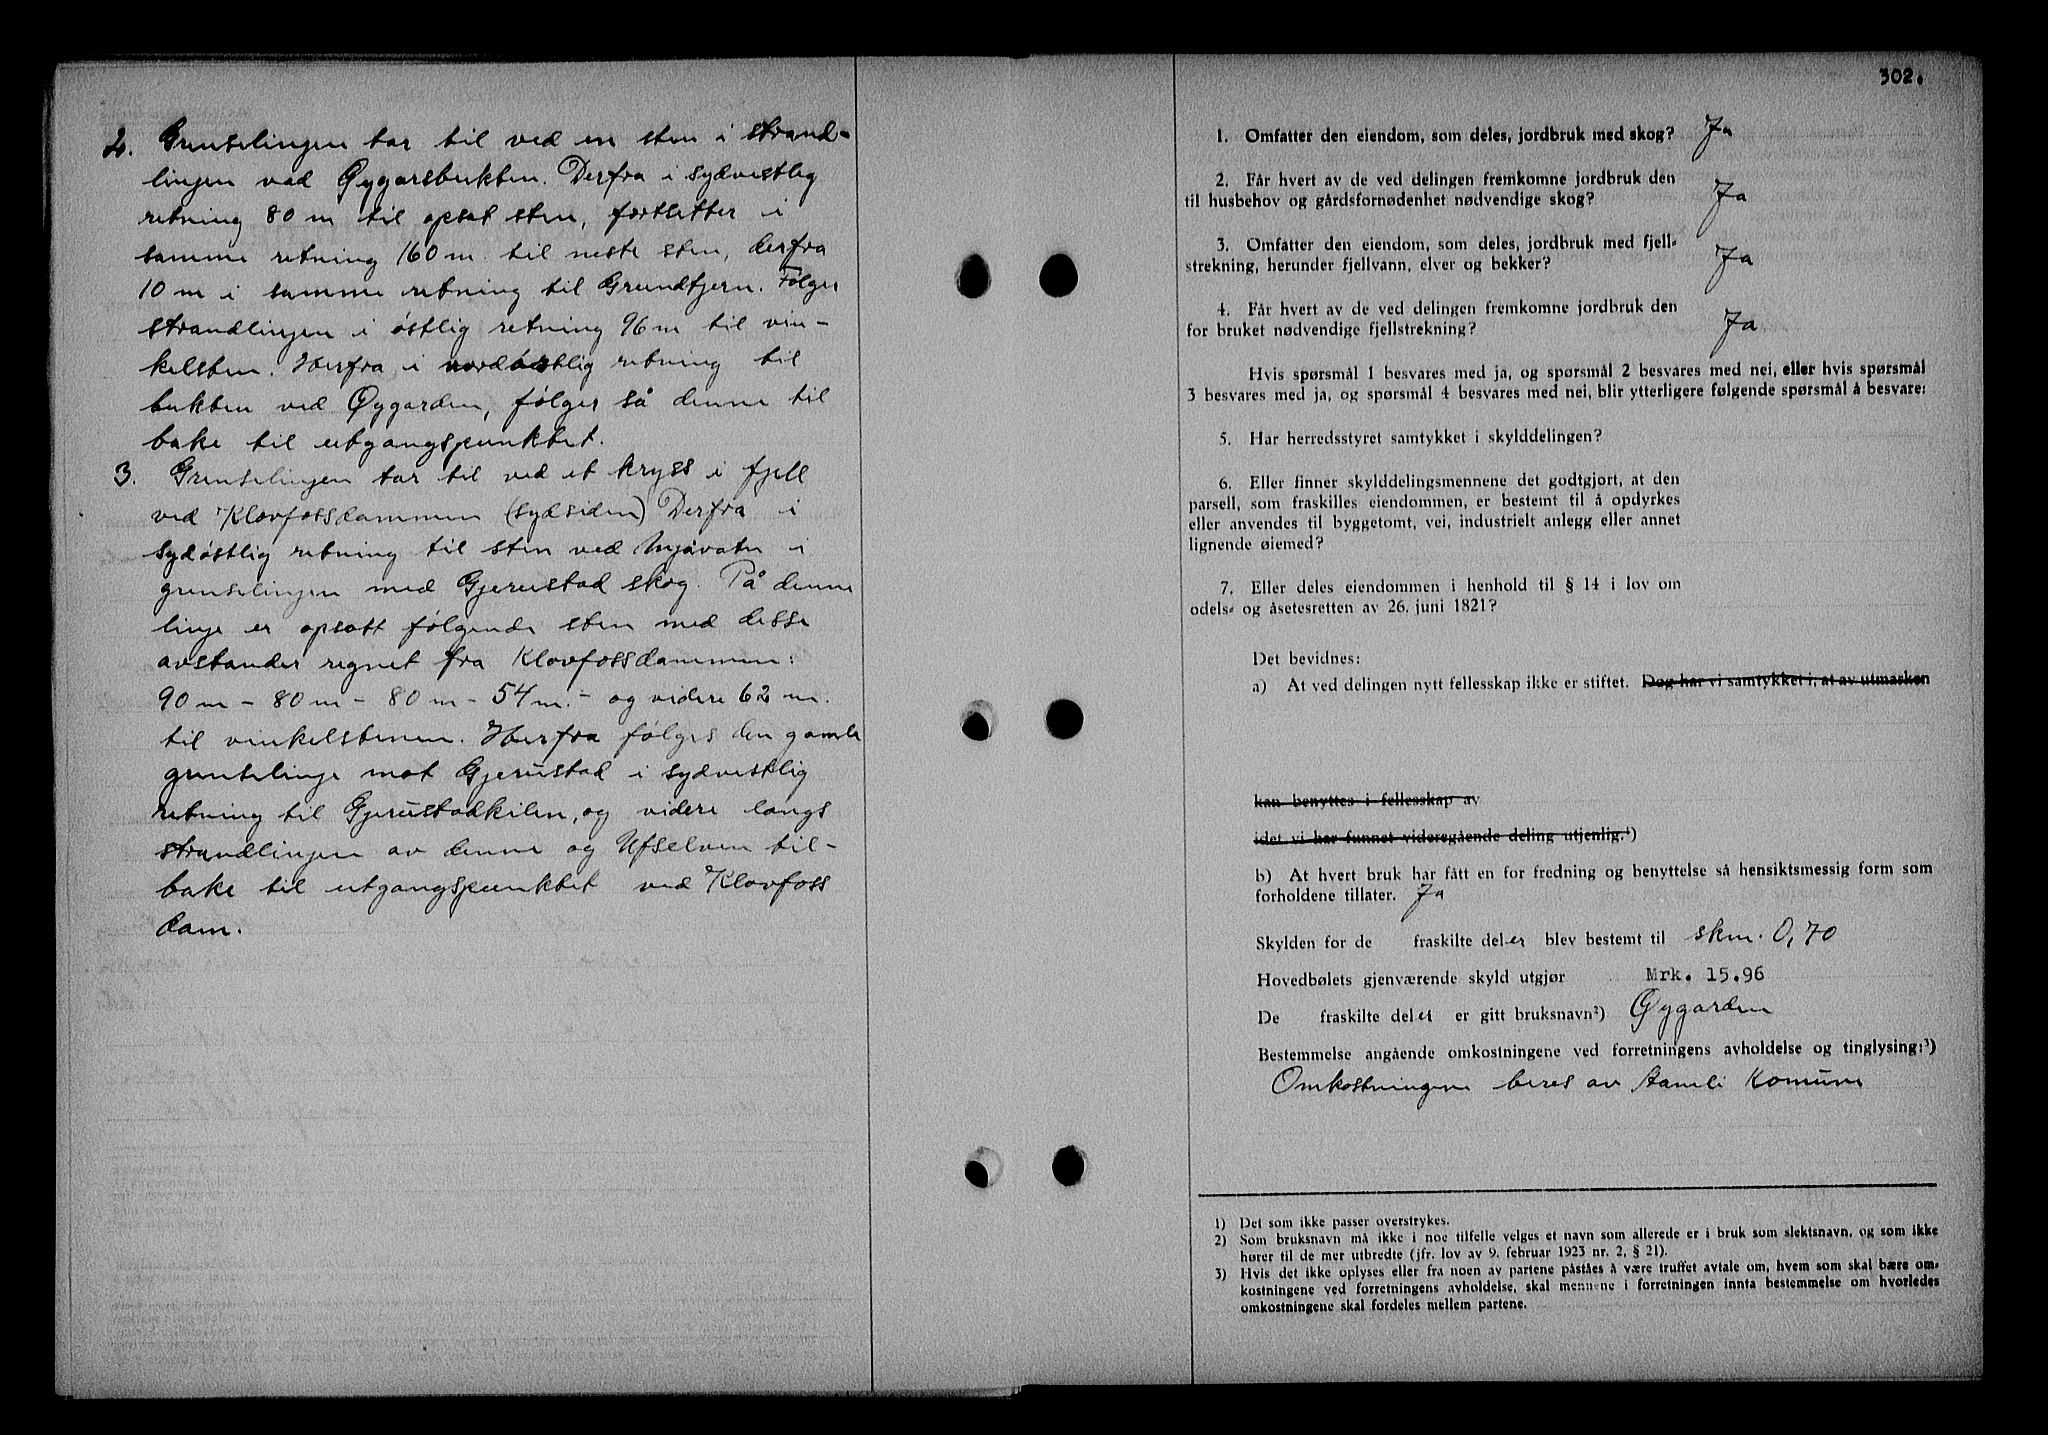 2. Grenselinjen tar til ved en sten i strand-
linjen ved Øygarsbukten. Derfra i sydvestlig
retning 80 m til opsat sten, fortsetter i
samme retning 160 m. til neste sten, derfra
10 m i samme retning til Grundtjern. Følger
strandlinjen i østlig retning 96 m til vin-
kelsten. Herfra i nordøstlig retning til
bukten ved Øygarden, følger så denne til
bake til utgangspunktet.
3. Grenselinjen tar til ved et kryss i fjell
ved Klovfossdammen (sydsiden) Derfra i
sydøstlig retning til sten ved Mjåvatn i
grenselinjen med Gjerustad skog. På denne
linje er opsatt følgende sten med disse
avstander regnet fra Klovfossdammen:
90 m - 80 m - 80 m - 54 m. - og videre 62 m.
til vinkelstenen. Herfra følges den gamle
grenselinje mot Gjerustad i sydvestlig
retning til Gjerustadkilen, og videre langs
strandlinjen av denne og Ufselven til-
bake til utgangspunktet ved Klovfoss
dam.
302.
1. Omfatter den eiendom, som deles, jordbruk med skog? Ja
2. Får hvert av de ved delingen fremkomne jordbruk den
til husbehov og gårdsfornødenhet nødvendige skog? Ja
3. Omfatter den eiendom, som deles, jordbruk med fjell-
strekning, herunder fjellvann, elver og bekker? Ja
4. Får hvert av de ved delingen fremkomne jordbruk den
for bruket nødvendige fjellstrekning? Ja
Hvis spørsmål 1 besvares med ja, og spørsmål 2 besvares med nei, eller hvis spørsmål
3 besvares med ja, og spørsmål 4 besvares med nei, blir ytterligere følgende spørsmål å besvare:
5. Har herredsstyret samtykket i skylddelingen?
6. Eller finner skylddelingsmennene det godtgjort, at den
parsell, som fraskilles eiendommen, er bestemt til å opdyrkes
eller anvendes til byggetomt, vei, industrielt anlegg eller annet
lignende øiemed?
7. Eller deles eiendommen i henhold til § 14 i lov om
odels- og åsetesretten av 26. juni 1821?
Det bevidnes:
a) At ved delingen nytt fellesskap ikke er stiftet. Dog har vi samtykket i, at av utmarken
kan benyttes i fellesskap av
idet vi har funnet videregående deling utjenlig.¹)
b) At hvert bruk har fått en for fredning og benyttelse så hensiktsmessig form som
forholdene tillater. Ja
Skylden for de fraskilte deler blev bestemt til skm. 0,70
Hovedbølets gjenværende skyld utgjør Mrk. 15.96
De fraskilte delel er gitt bruksnavn²) Øygarden
Bestemmelse angående omkostningene ved forretningens avholdelse og tinglysing:³)
Omkostningene beres av Aamli Komune
1) Det som ikke passer overstrykes.
2) Som bruksnavn må ikke i noe tilfelle velges et navn som allerede er i bruk som slektsnavn, og som ikke
hører til de mer utbredte (jfr. lov av 9. februar 1923 nr. 2, § 21).
3) Hvis det ikke oplyses eller fra noen av partene påståes å være truffet avtale om, hvem som skal bære om-
kostningene ved forretningens avholdelse, skal mennene i forretningen innta bestemmelse om hvorledes
omkostningene skal fordeles mellem partene.